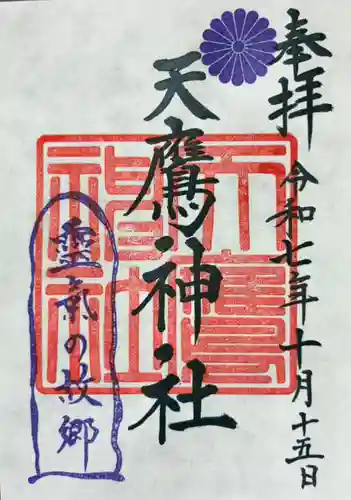 奉拝
令和七年十月十五日
天鷹神社
天鷹神社
霊氣の故郷